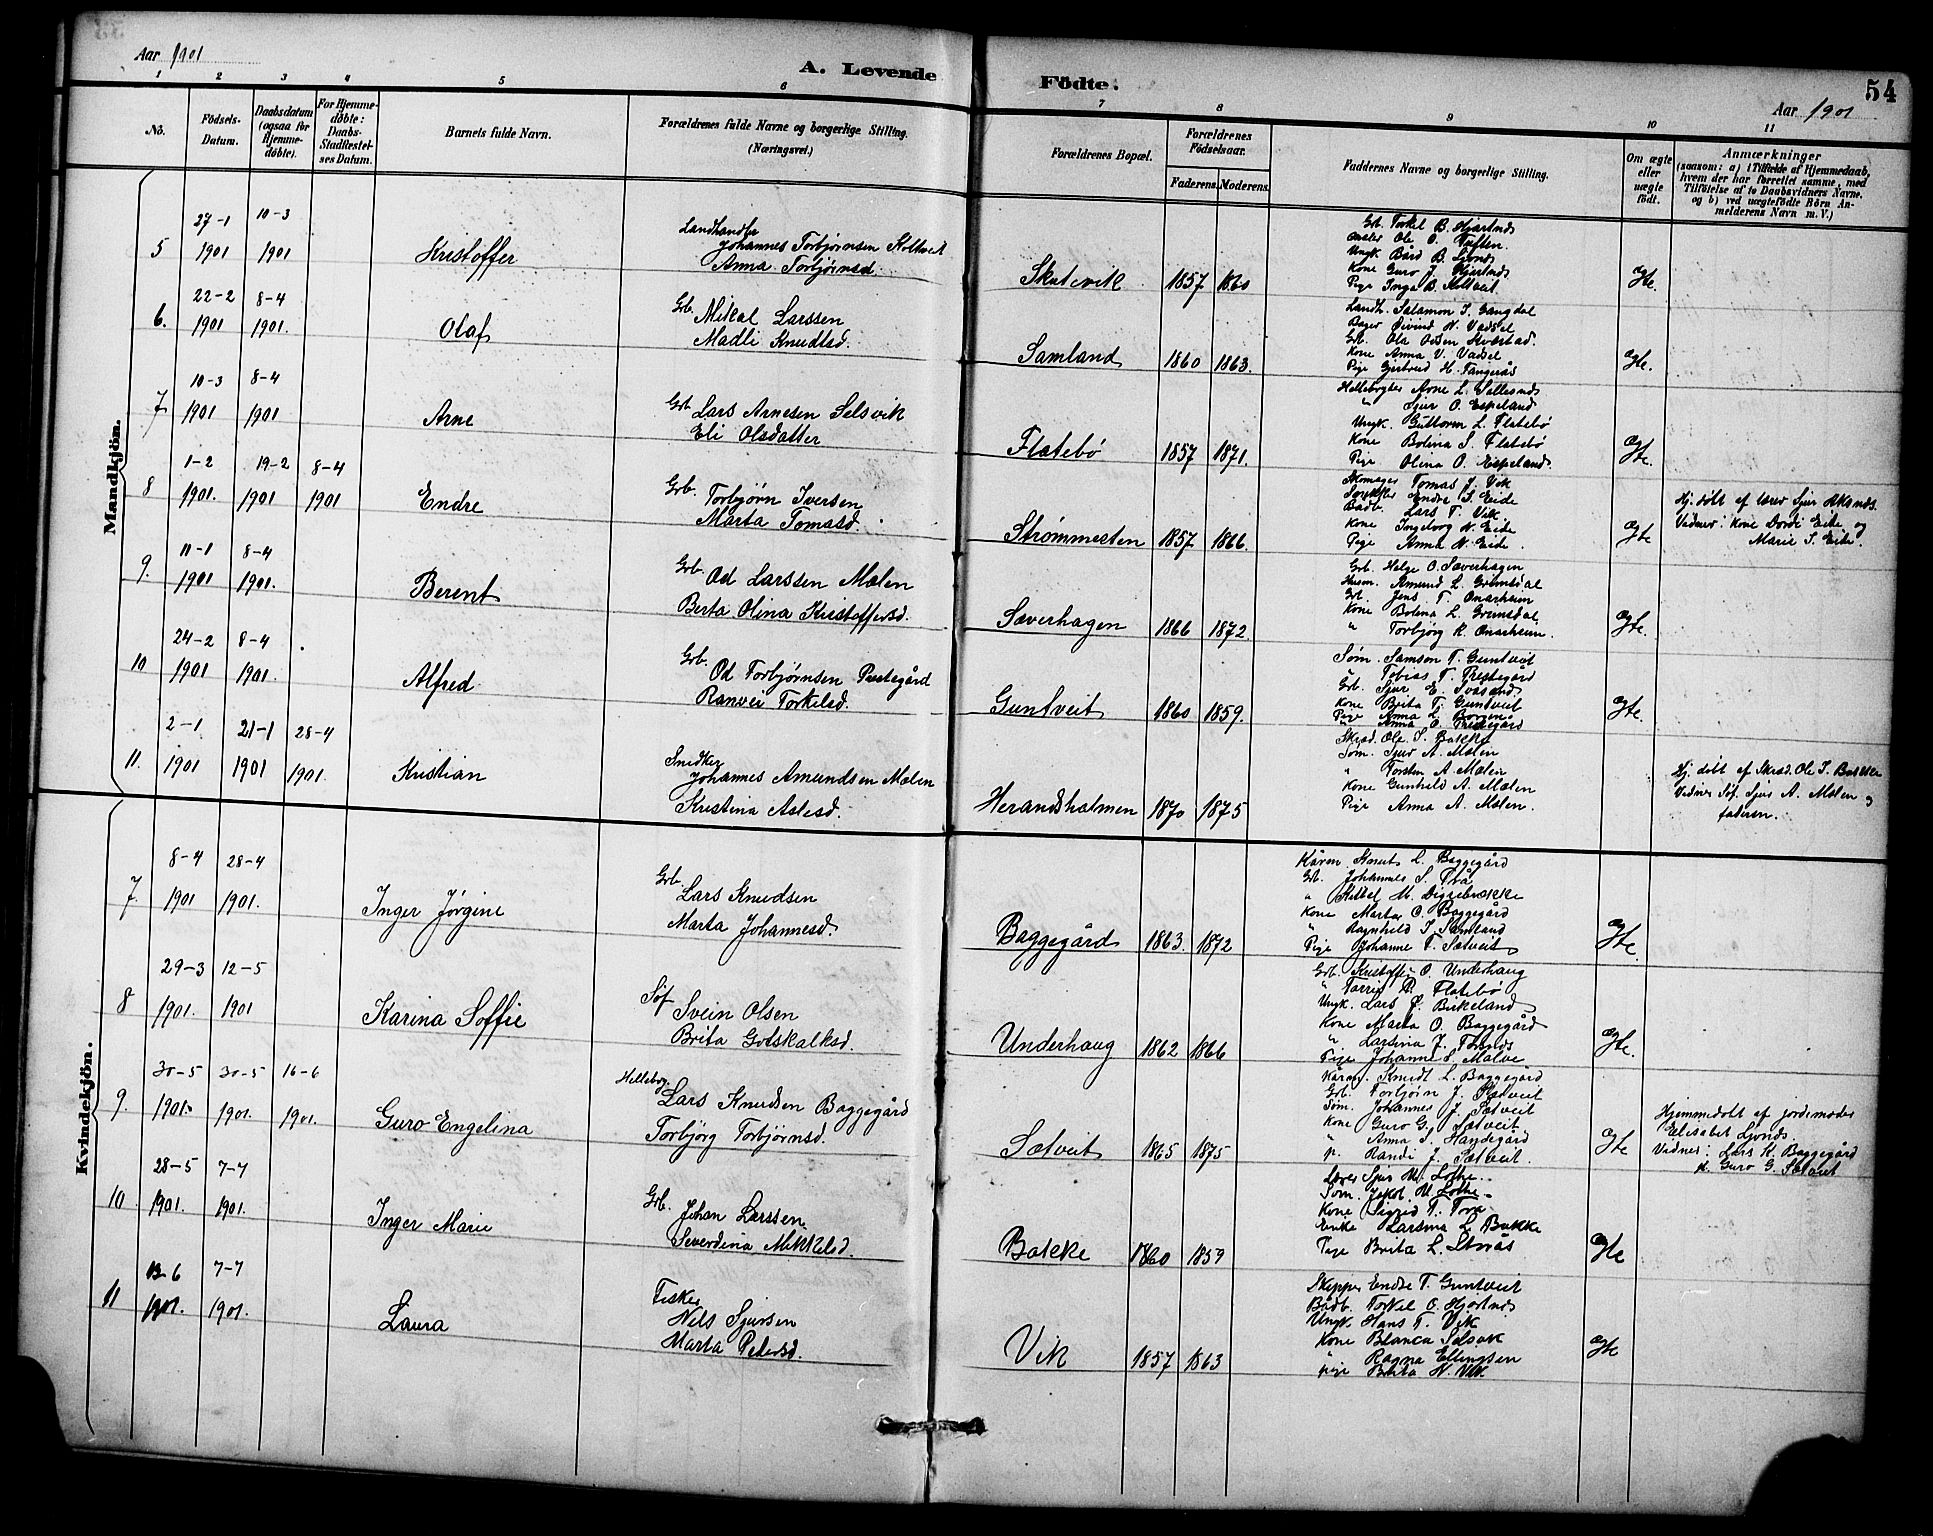 Aar 1901
A. Levende Födte.
54
Aar 1901
1 2 3 4 5 6 7 8 9 10 11
No.
Födsels-Datum.
Daabsdatum (ogsaa for Hjemme-döbte).
For Hjemme-döbte: Daabs-Stadfæstel-ses Datum.
Barnets fulde Navn.
Forældrenes fulde Navne og borgerlige Stilling. (Næringsvei.)
Forældrenes Bopæl.
Forældrenes Födselsaar.
Faderens. Moderens.
Faddernes Navne og borgerlige Stilling.
Om ægte eller uægte födt.
Anmærkninger
(saasom: a) i Tilfælde af Hjemmedaab,
hvem der har forrettet samme, med
Tilföielse af to Daabsvidners Navne,
og b) ved uægtefödte Börn An-
melderens Navn m. V.)
Mandkjön.
5
27-1 1901
10-3 1901
Kristoffer
Landhandler
Johannes Torbjørnsen Koltveit
Anna Torbjørnsd.
Skutevik
1857 1860
Grb. Torkel B. Hjartnes
Ole O. Tuften.
Ungk. Bård B. Ljones
Kone Guro J. Hjartnes
Pige Inga B. Koltveit
Gte.
6.
22-2 1901
8-4 1901.
Olaf
Grb. Mikal Larssen
Madli Knudtsd.
Samland
1860 1863.
Landh. Salamon J. Gangdal
Bager Øivind N. Vadsel
Grb. Ola Odsen Kvæstad.
Kone Anna V. Vadsel
Pige Gjertrud H. Tangerås
Gte.
7
10-3 1901
8-4 1901
Arne
Grb. Lars Arnesen Selsvik
Eli Olsdatter
Flatebø
1857 1871.
Hellebryter Arne L. Sellesnes
" Sjur O. Espeland
Ungk. Guttorm L. Flatebø
Kone Bolina S. Flatebø
Pige Olina O. Espeland.
Gte.
8
1-2 1901.
19-2 1901
8-4 1901
Endre
Grb. Torbjørn Iversen
Marta Tomasd.
Strømmesten
1857 1866.
Skomager Tomas J. Vik
Endre S. Eide
Bådb. Lars T. Vik
Kone Ingeborg N. Eide
Pige Anna N. Eide.
Gte
Hj. døbt af lærer Sjur Aksnes.
Vidner: Kone Dordi Eide og
Marie S. Eide.
9.
11-1 1901
8-4 1901.
Berent
Grb. Od Larssen Mælen
Berta Olina Kristoffersd.
Sæverhagen
1866 1872.
Grb. Helge O. Sæverhagen
Husm. Amund L. Grimsdal
Grb. Jens T. Onarheim
Kone Bolina L. Grimsdal
" Torbjørg K. Onarheim.
Gte.
10
24-2 1901
8-4 1901.
Alfred
Grb. Od Torbjørnsen Prestegård
Ranvei Torkelsd.
Guntveit
1860 1859.
Søm. Samson T. Guntveit
" Tobias T. Prestegård
Grb. Sjur E. Svåsand
Kone Brita T. Guntveit
Pige Anna L. Borgen
" Anna O. Prestegård
Gte.
11.
2-1 1901
21-1 1901
28-4 1901.
Kristian
Snidker
Johannes Amundsen Mælen
Kristina Aslesd.
Herandsholmen
1870 1875
Skræd. Ole S. Bakke
Søm. Sjur A. Mælen
" Torsten A. Mælen
Kone Gunhild A. Mælen
Pige Anna A. Mælen.
Hj. døbt af Skræd. Ole S. Bakke
Vidner Søf. Sjur A. Mælen og
faderen.
Kvindekjön.
7
8-4 1901
28-4 1901.
Inger Jørgine
Grb. Lars Knudsen
Marta Johannesd.
Baggegård
1863. 1872
Kårm. Knut L. Baggegård
Grb. Johannes S. Trå
" Mikkel M. Digrebrekke
Kone Marta O. Baggegård
" Ragnhild S. Samland
Pige Johanne T. Sætveit
Gte
8
29-3 1901.
12-5 1901
Karina Soffie
Søf Svein Olsen
Brita Gotskalksd.
Underhaug
1862 1866
Grb. Kristoffer O. Underhaug
" Torris P. Flatebø
Ungk. Lars P. Birkeland
Kone Marta O. Baggegård
" Larsina J.
Pige Johanne S. Malve
Gte.
9.
30-5 1901.
30-5 1901.
16-6 1901.
Guro Engelina
Hellebry. Lars Knudsen Baggegård
Torbjørg Torbjørnsd.
Sætveit
1865 1875
Kårm. Knudt L. Baggegård
Grb. Torbjørn J. Sætveit
Søm. Johannes J. Sætveit
Kone Guro G. Sætveit
" Anna S. Handegård
p. Randi J. Sætveit.
Gte
Hjemmedøbt af jordemoder
Elisabet Ljones.
Vidner: Lars K. Baggegård
k. Guro G. Sætveit
10
28-5 1901.
7-7 1901.
Inger Marie
Grb. Johan Larssen
Severdina Mikkelsd.
Bakke
1860 1859
Lærer Sjur M. Lothe.
Søm. Jakob M. Lothe.
Kone Sigrid T. Tra
Enke Larsina L. Bakke
Pige Brita L. Storås
Gte
11
13-6 1901.
7-7 1901.
Laura
Fisker
Nils Sjursen
Marta Petersd.
Vik
1857 1863
Skipper Endre T. Guntveit
Bådb. Torkel O. Hjartnes
Ungk. Hans T. Vik
Kone Blanca Selsvik
" Ragna Ellingsen
pige Brita N. Vik
Gte